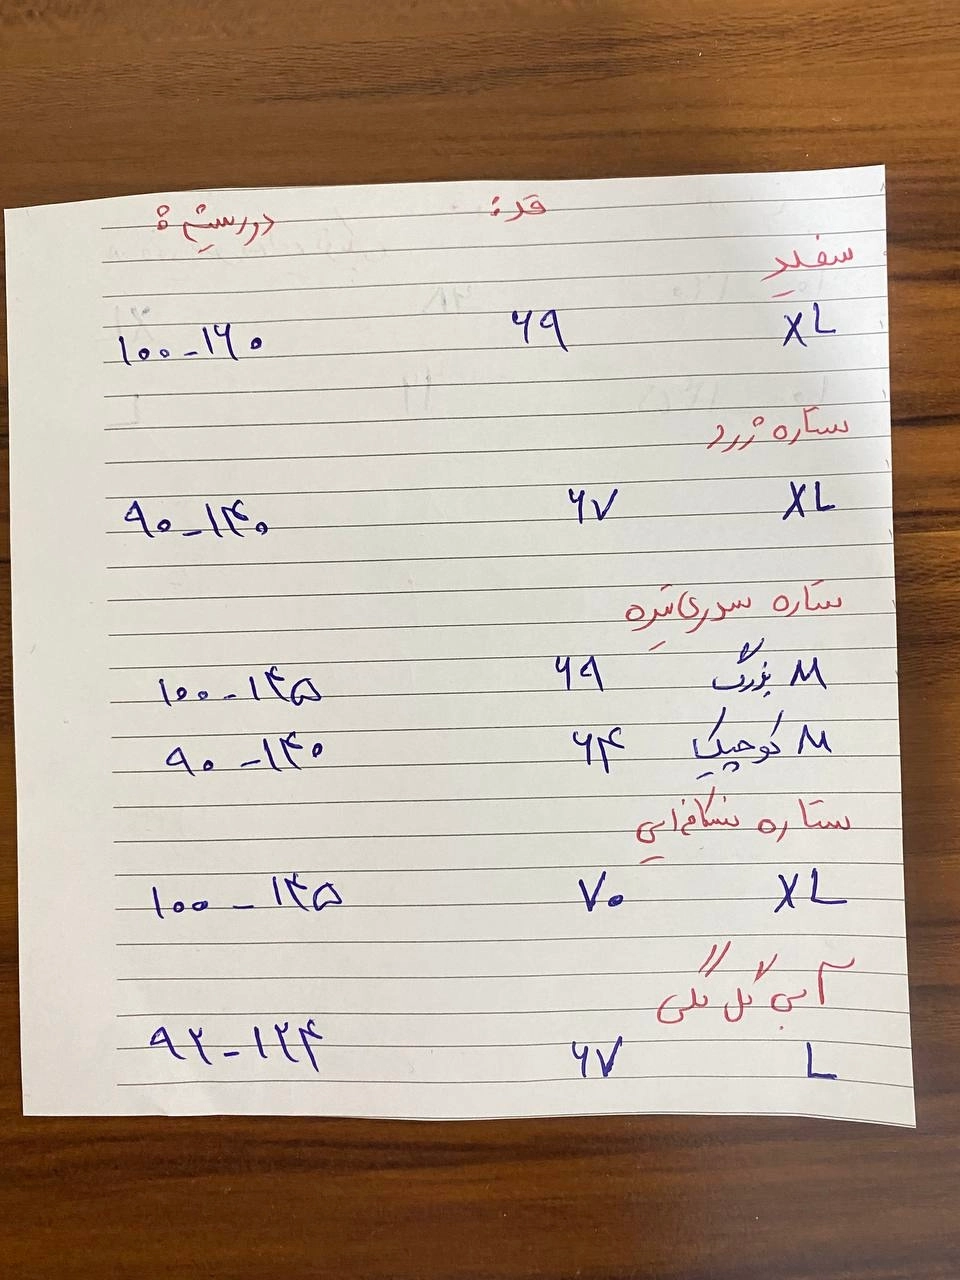 قد: دور سینه:
سفید
XL ۶۹ ۱۰۰-۱۶۰
ستاره زرد
XL ۶۷ ۹۰-۱۴۰
ستاره سدری تیره
M بزرگ ۶۹ ۱۰۰-۱۴۵
M کوچیک ۶۴ ۹۰-۱۴۰
ستاره نسکافه ایی
XL ۷۰ ۱۰۰-۱۴۵
آبی گل گلی
L ۶۷ ۹۲-۱۲۴